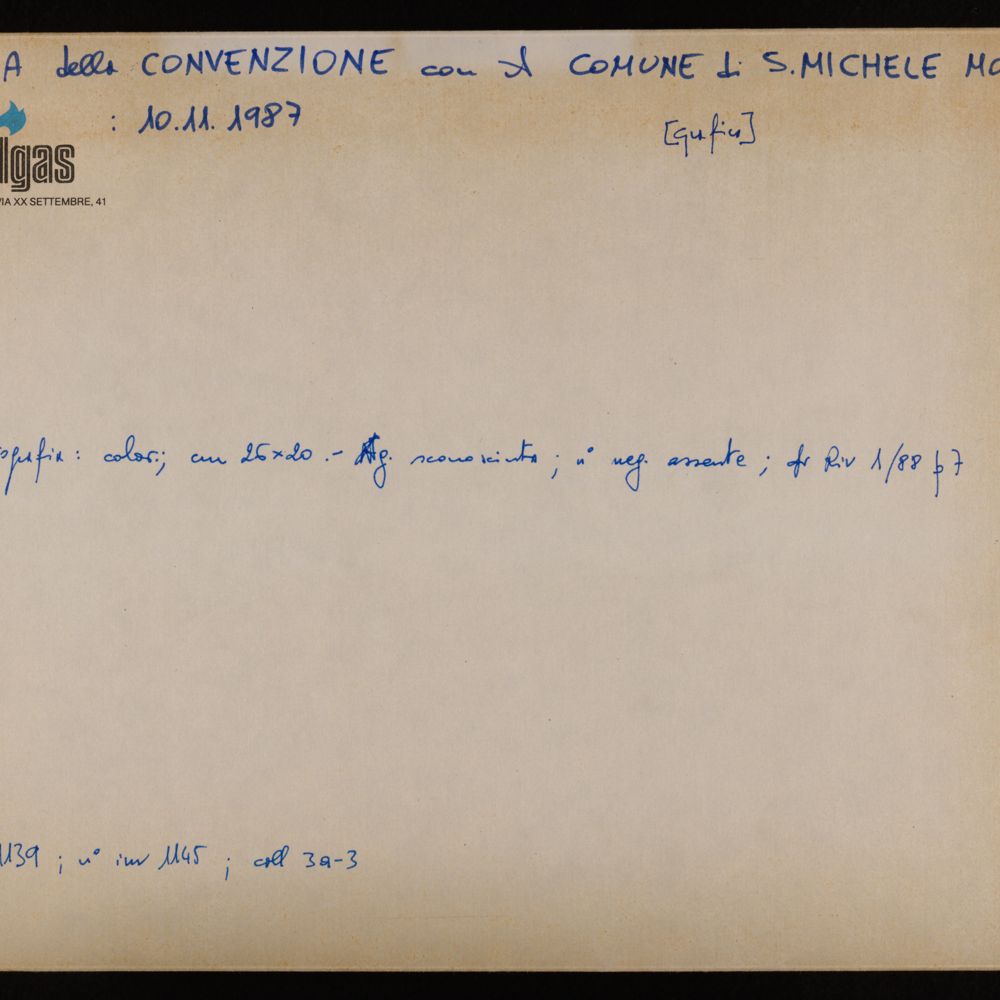 A della CONVENZIONE con il COMUNE di S.MICHELE MO
: 10.11.1987
[grafica]
lgas
VIA XX SETTEMBRE, 41
ografia: color.; cm 25×20 .- Ag. sconosciuta ; n° neg. assente ; cfr Riv 1/88 p 7
1139 ; n° inv 1145 ; coll 3a-3